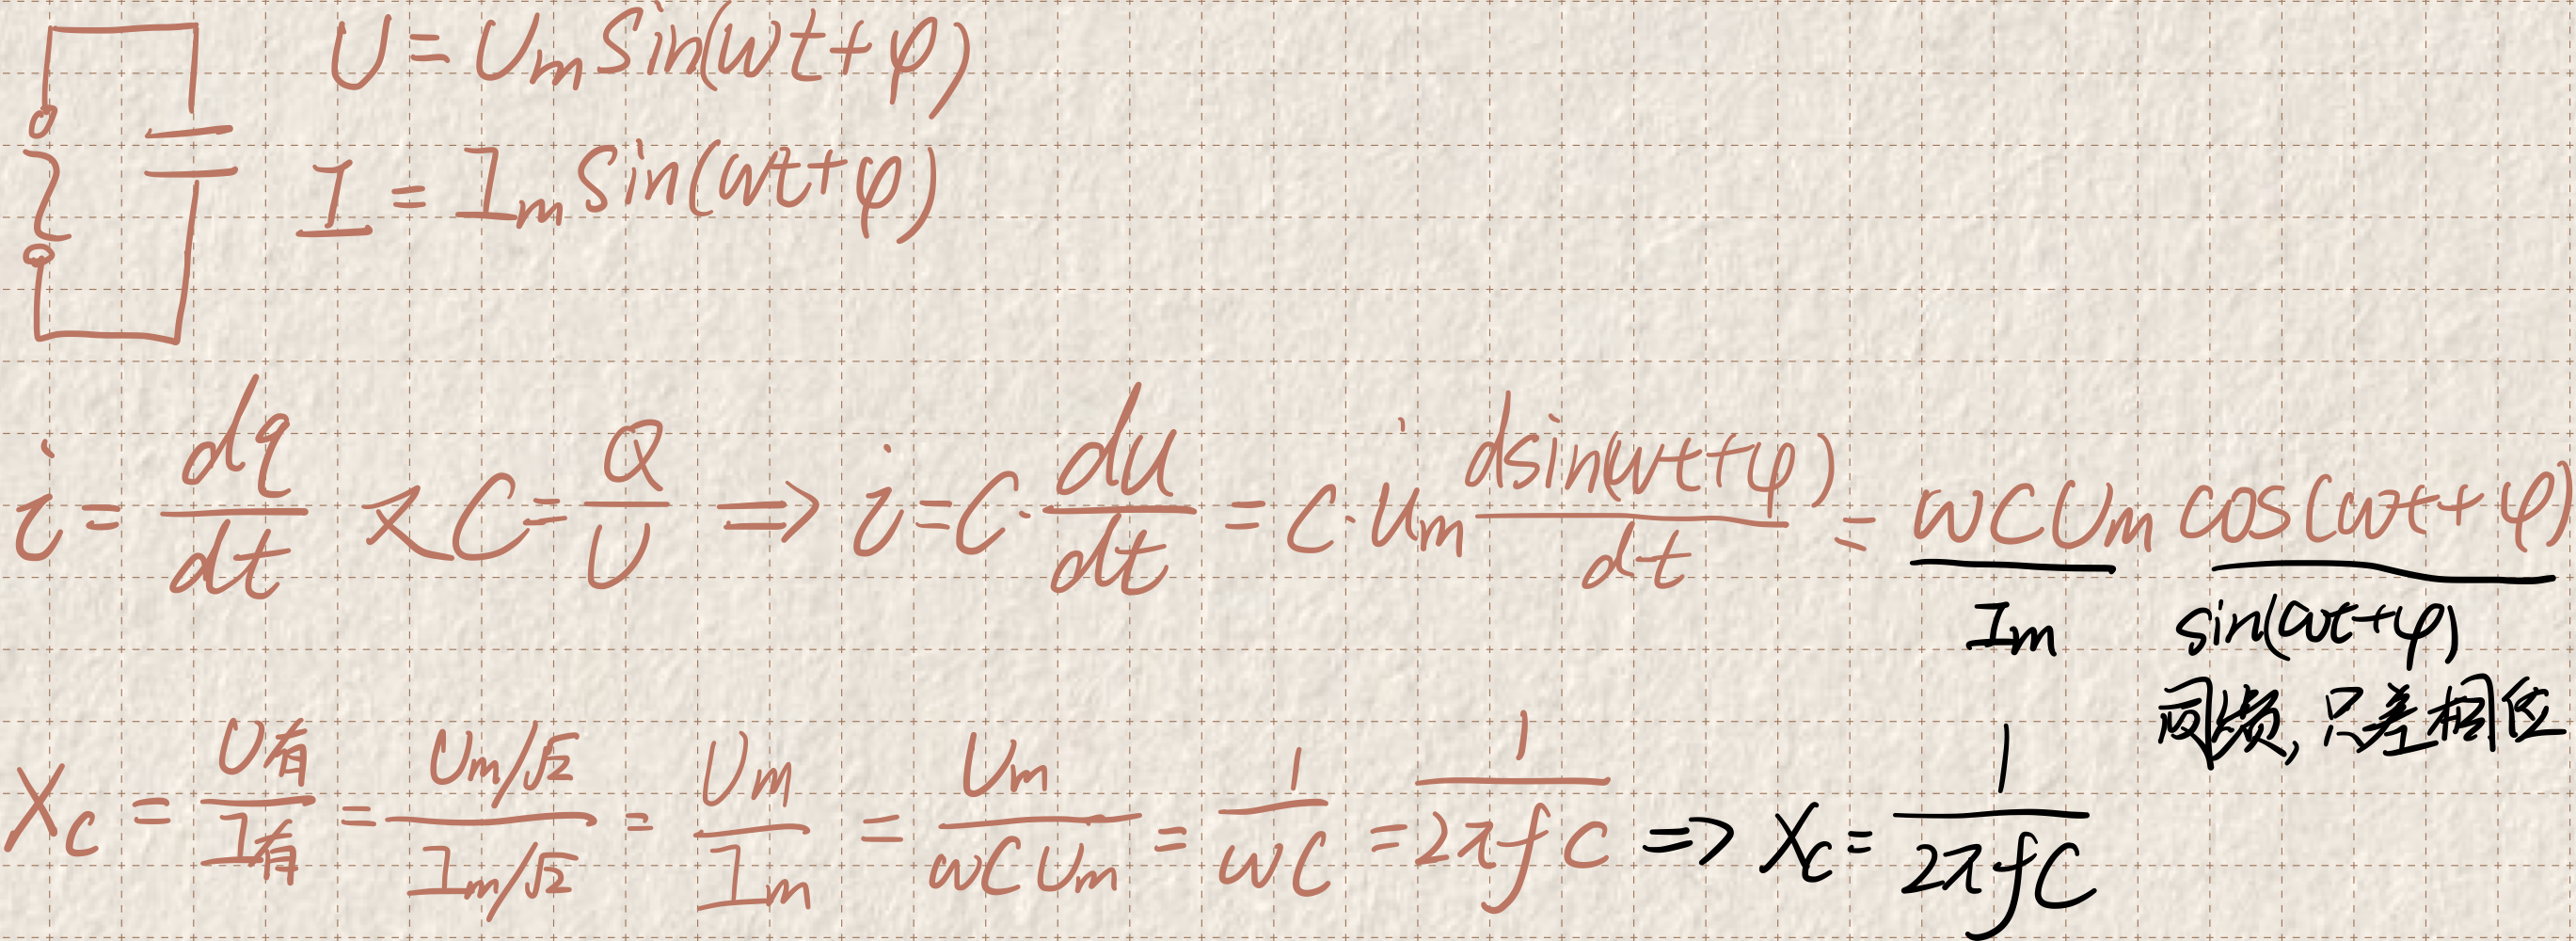 U = Um sin(ωt+φ)
I = Im sin(ωt+φ)
i = dq/dt 又 C = Q/U ⇒ i = C·du/dt = C·Um dsin(ωt+φ)/dt = ωCUm cos(ωt+φ)
Im sin(ωt+φ)
同频,只差相位
Xc = U有/I有 = (Um/√2)/(Im/√2) = Um/Im = Um/ωCUm = 1/ωC = 1/2πfC ⇒ Xc = 1/2πfC